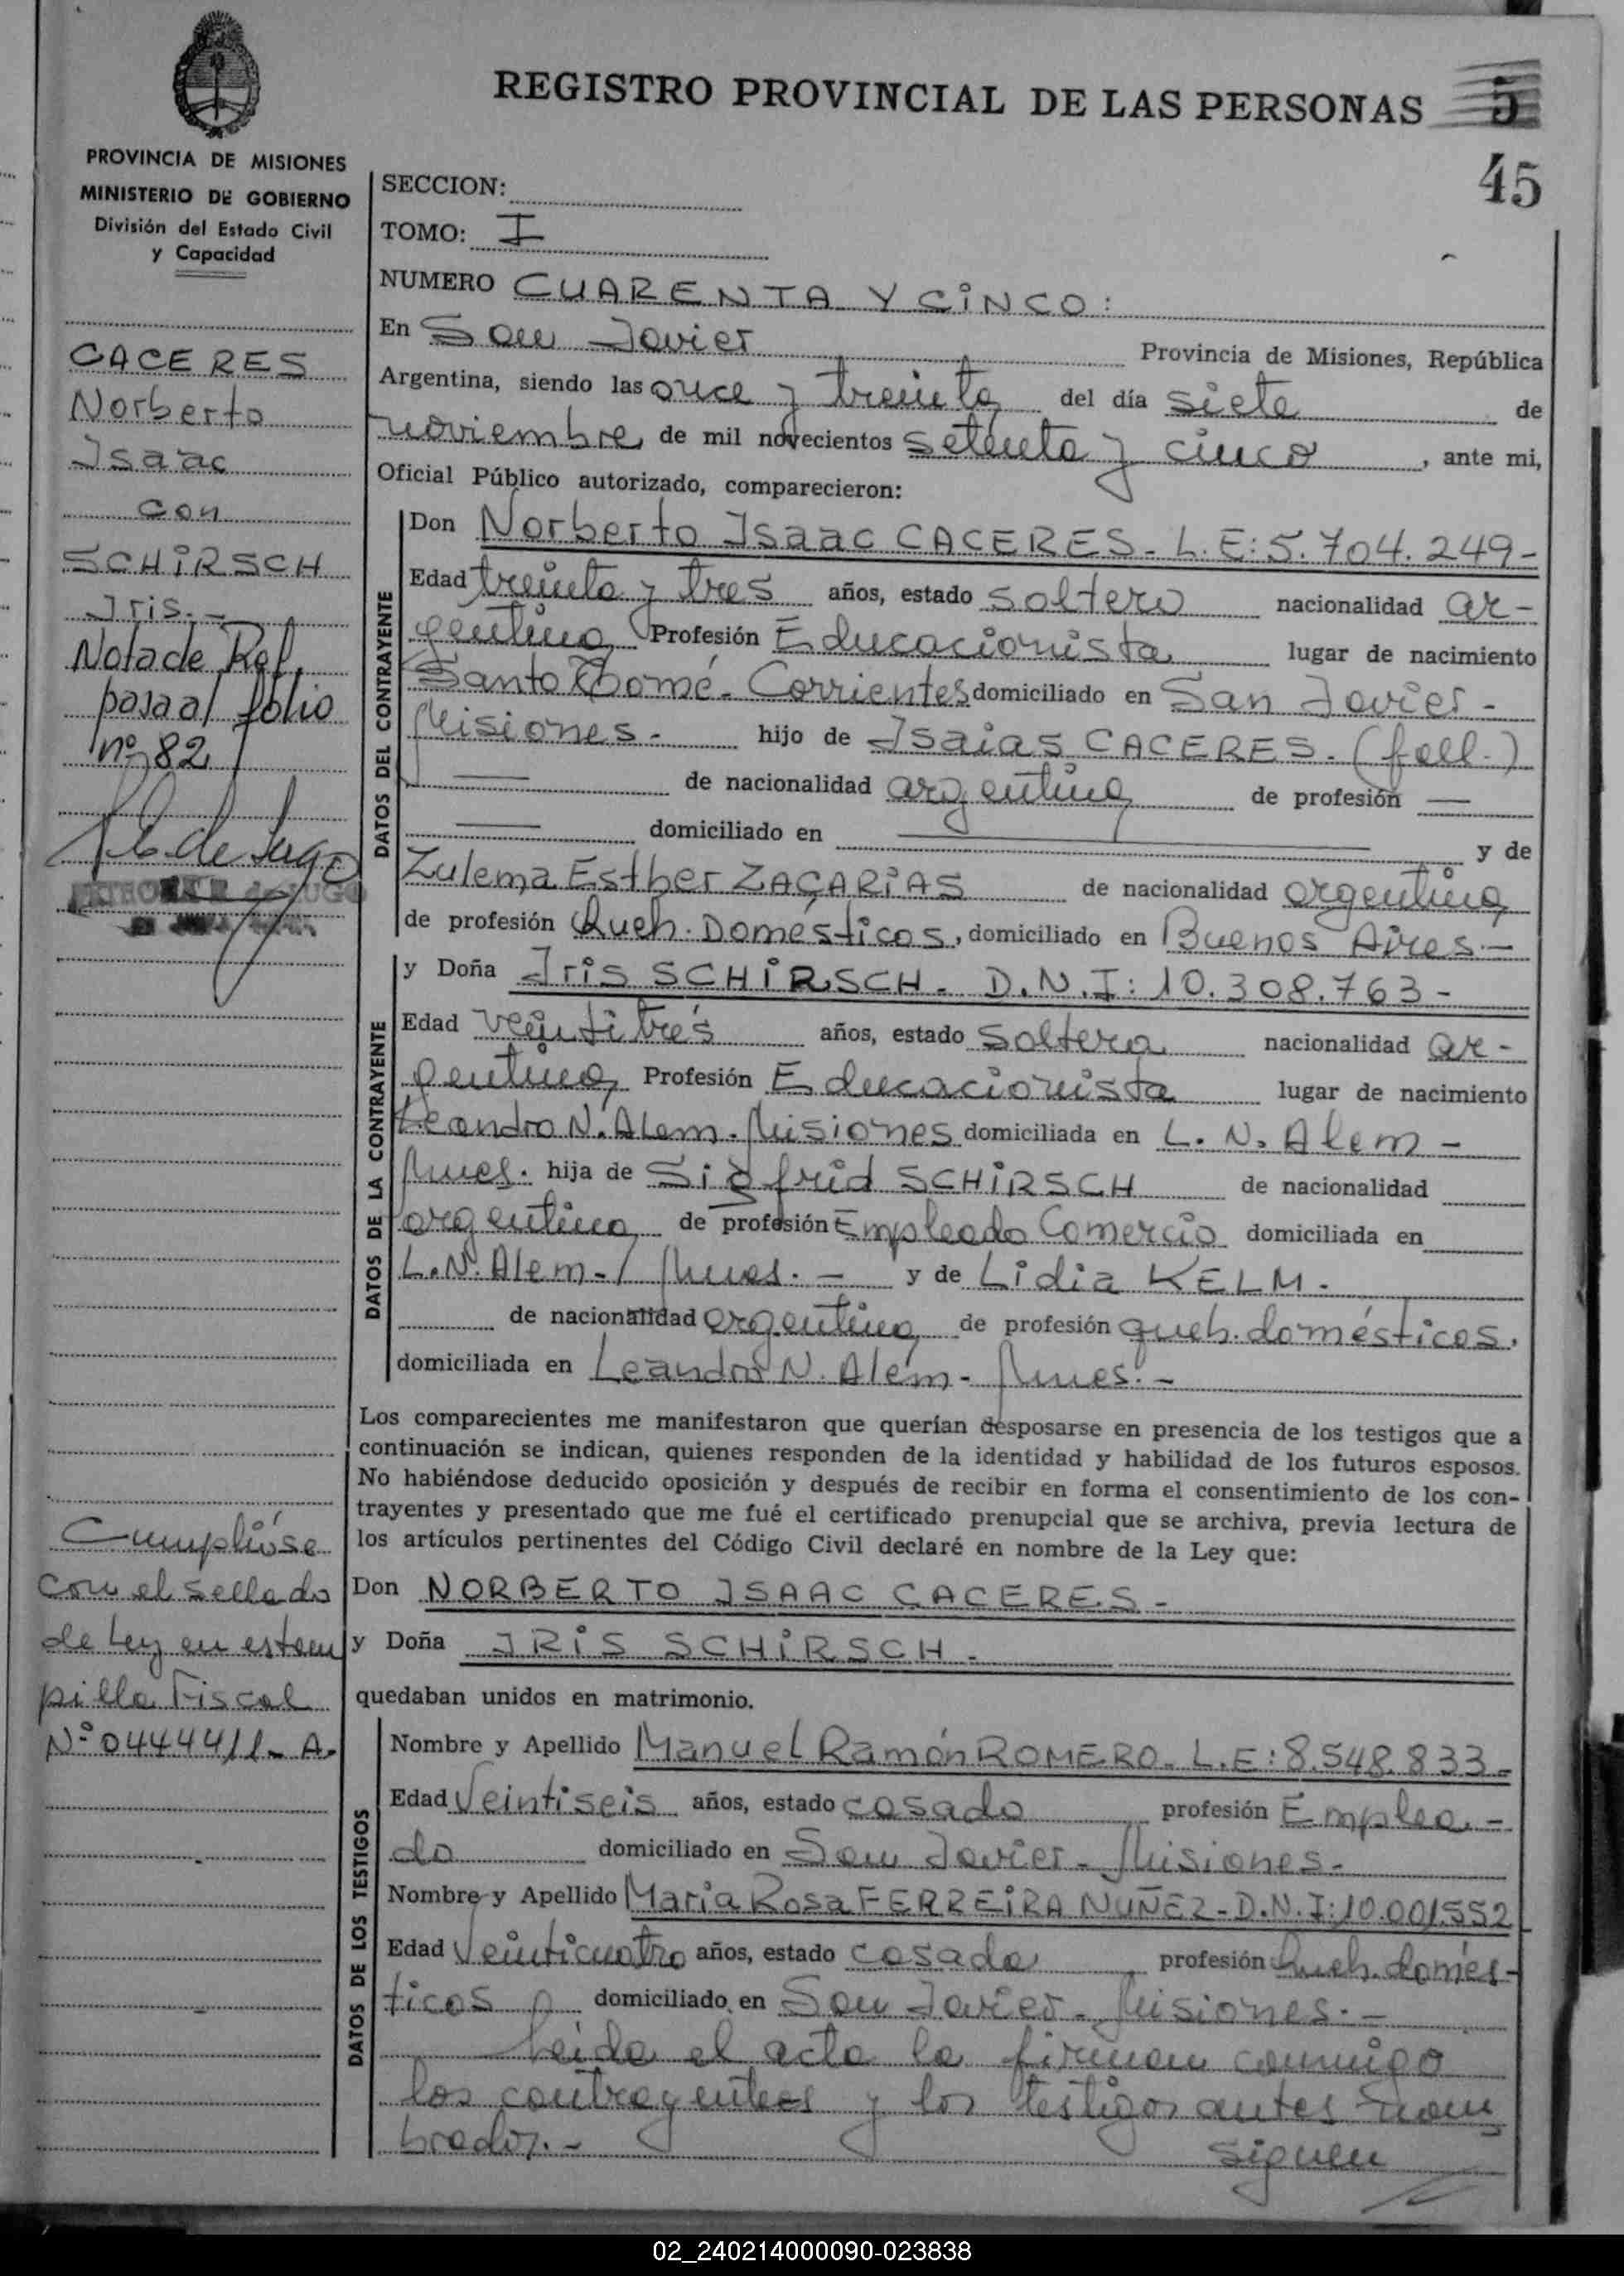 REGISTRO PROVINCIAL DE LAS PERSONAS 5
45
PROVINCIA DE MISIONES
MINISTERIO DE GOBIERNO
División del Estado Civil
y Capacidad
CACERES
Norberto
Isaac
con
SCHIRSCH
Iris.-
Nota de Ref.
pasa al folio
nº 82
de Lugo
SECCION:
TOMO: I
NUMERO CUARENTA Y CINCO:
En San Javier Provincia de Misiones, República
Argentina, siendo las once y treinta del día siete de
noviembre de mil novecientos setenta y cinco, ante mi,
Oficial Público autorizado, comparecieron:
DATOS DEL CONTRAYENTE
Don Norberto Isaac CACERES - L.E: 5.704.249-
Edad treinta y tres años, estado soltero nacionalidad ar-
gentina Profesión Educacionista lugar de nacimiento
Santo Tomé - Corrientes domiciliado en San Javier -
Misiones.- hijo de Isaias CACERES. (fall.)
de nacionalidad argentina de profesión —
domiciliado en y de
Zulema Esther ZACARIAS de nacionalidad argentina
de profesión Queh. Domésticos, domiciliado en Buenos Aires.-
DATOS DE LA CONTRAYENTE
y Doña Iris SCHIRSCH - D.N.I: 10.308.763-
Edad veintitrés años, estado soltera nacionalidad ar-
gentina Profesión Educacionista lugar de nacimiento
Leandro N. Alem. Misiones domiciliada en L. N. Alem -
Mnes. hija de Sigfrid SCHIRSCH de nacionalidad
argentina de profesión Empleado Comercio domiciliada en
L.N. Alem-/ Mnes. - y de Lidia KELM.
de nacionalidad argentina de profesión queh. domésticos.
domiciliada en Leandro N. Alem - Mnes. -
Los comparecientes me manifestaron que querían desposarse en presencia de los testigos que a
continuación se indican, quienes responden de la identidad y habilidad de los futuros esposos.
No habiéndose deducido oposición y después de recibir en forma el consentimiento de los con-
trayentes y presentado que me fué el certificado prenupcial que se archiva, previa lectura de
los artículos pertinentes del Código Civil declaré en nombre de la Ley que:
Don NORBERTO ISAAC CACERES -
y Doña IRIS SCHIRSCH -
quedaban unidos en matrimonio.
Cumplióse
con el sellado
de Ley en estam
pilla Fiscal
Nº 0444411- A.
DATOS DE LOS TESTIGOS
Nombre y Apellido Manuel Ramón ROMERO - L.E: 8.548.833-
Edad Veintiseis años, estado casado profesión Emplea-
do domiciliado en San Javier - Misiones-
Nombre y Apellido María Rosa FERREIRA NUÑEZ - D.N.I: 10.001.552
Edad Veinticuatro años, estado casada profesión Queh. domés-
ticos domiciliado en San Javier - Misiones. -
Leida el acta la firman conmigo
los contrayentes y los testigos antes nom
brados.-
siguen
02_240214000090-023838